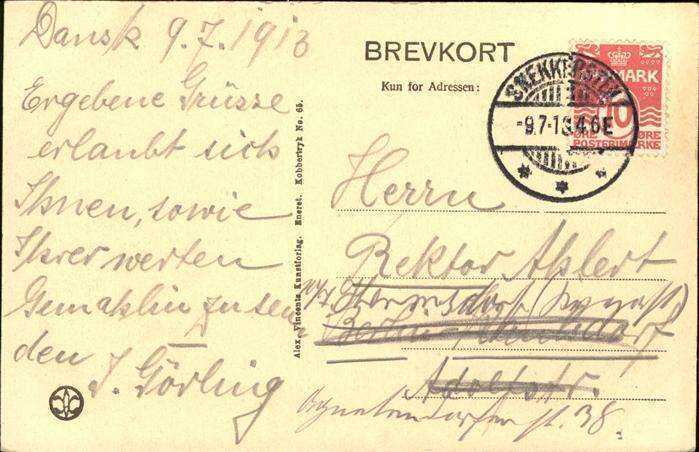 Dansk 9.7.1913
Ergebene Grüsse
erlaubt sich
Ihnen, sowie
Ihrer werten
Gemahlin zu sen
den J. Görling
Alex. Vincents Kunstforlag. Eneret. Kobbertryk No. 65.
BREVKORT
Kun for Adressen:
SNEKKERSTEN
-9.7-13.4.6E
MARK
10
ØRE ØRE
POSTFRIMÆRKE
Herrn
Rektor Ahlert
Berlin
Adolfstr.
str. 38.